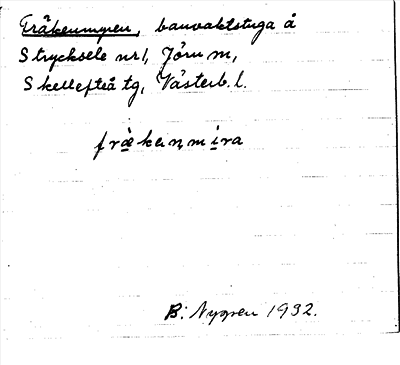 Fräkenmyren, banvaktstuga å
Strycksele nr 1, Jörn sn,
Skellefteå tg, Västerb. l.
fræ̀kenmira
B. Nygren 1932.